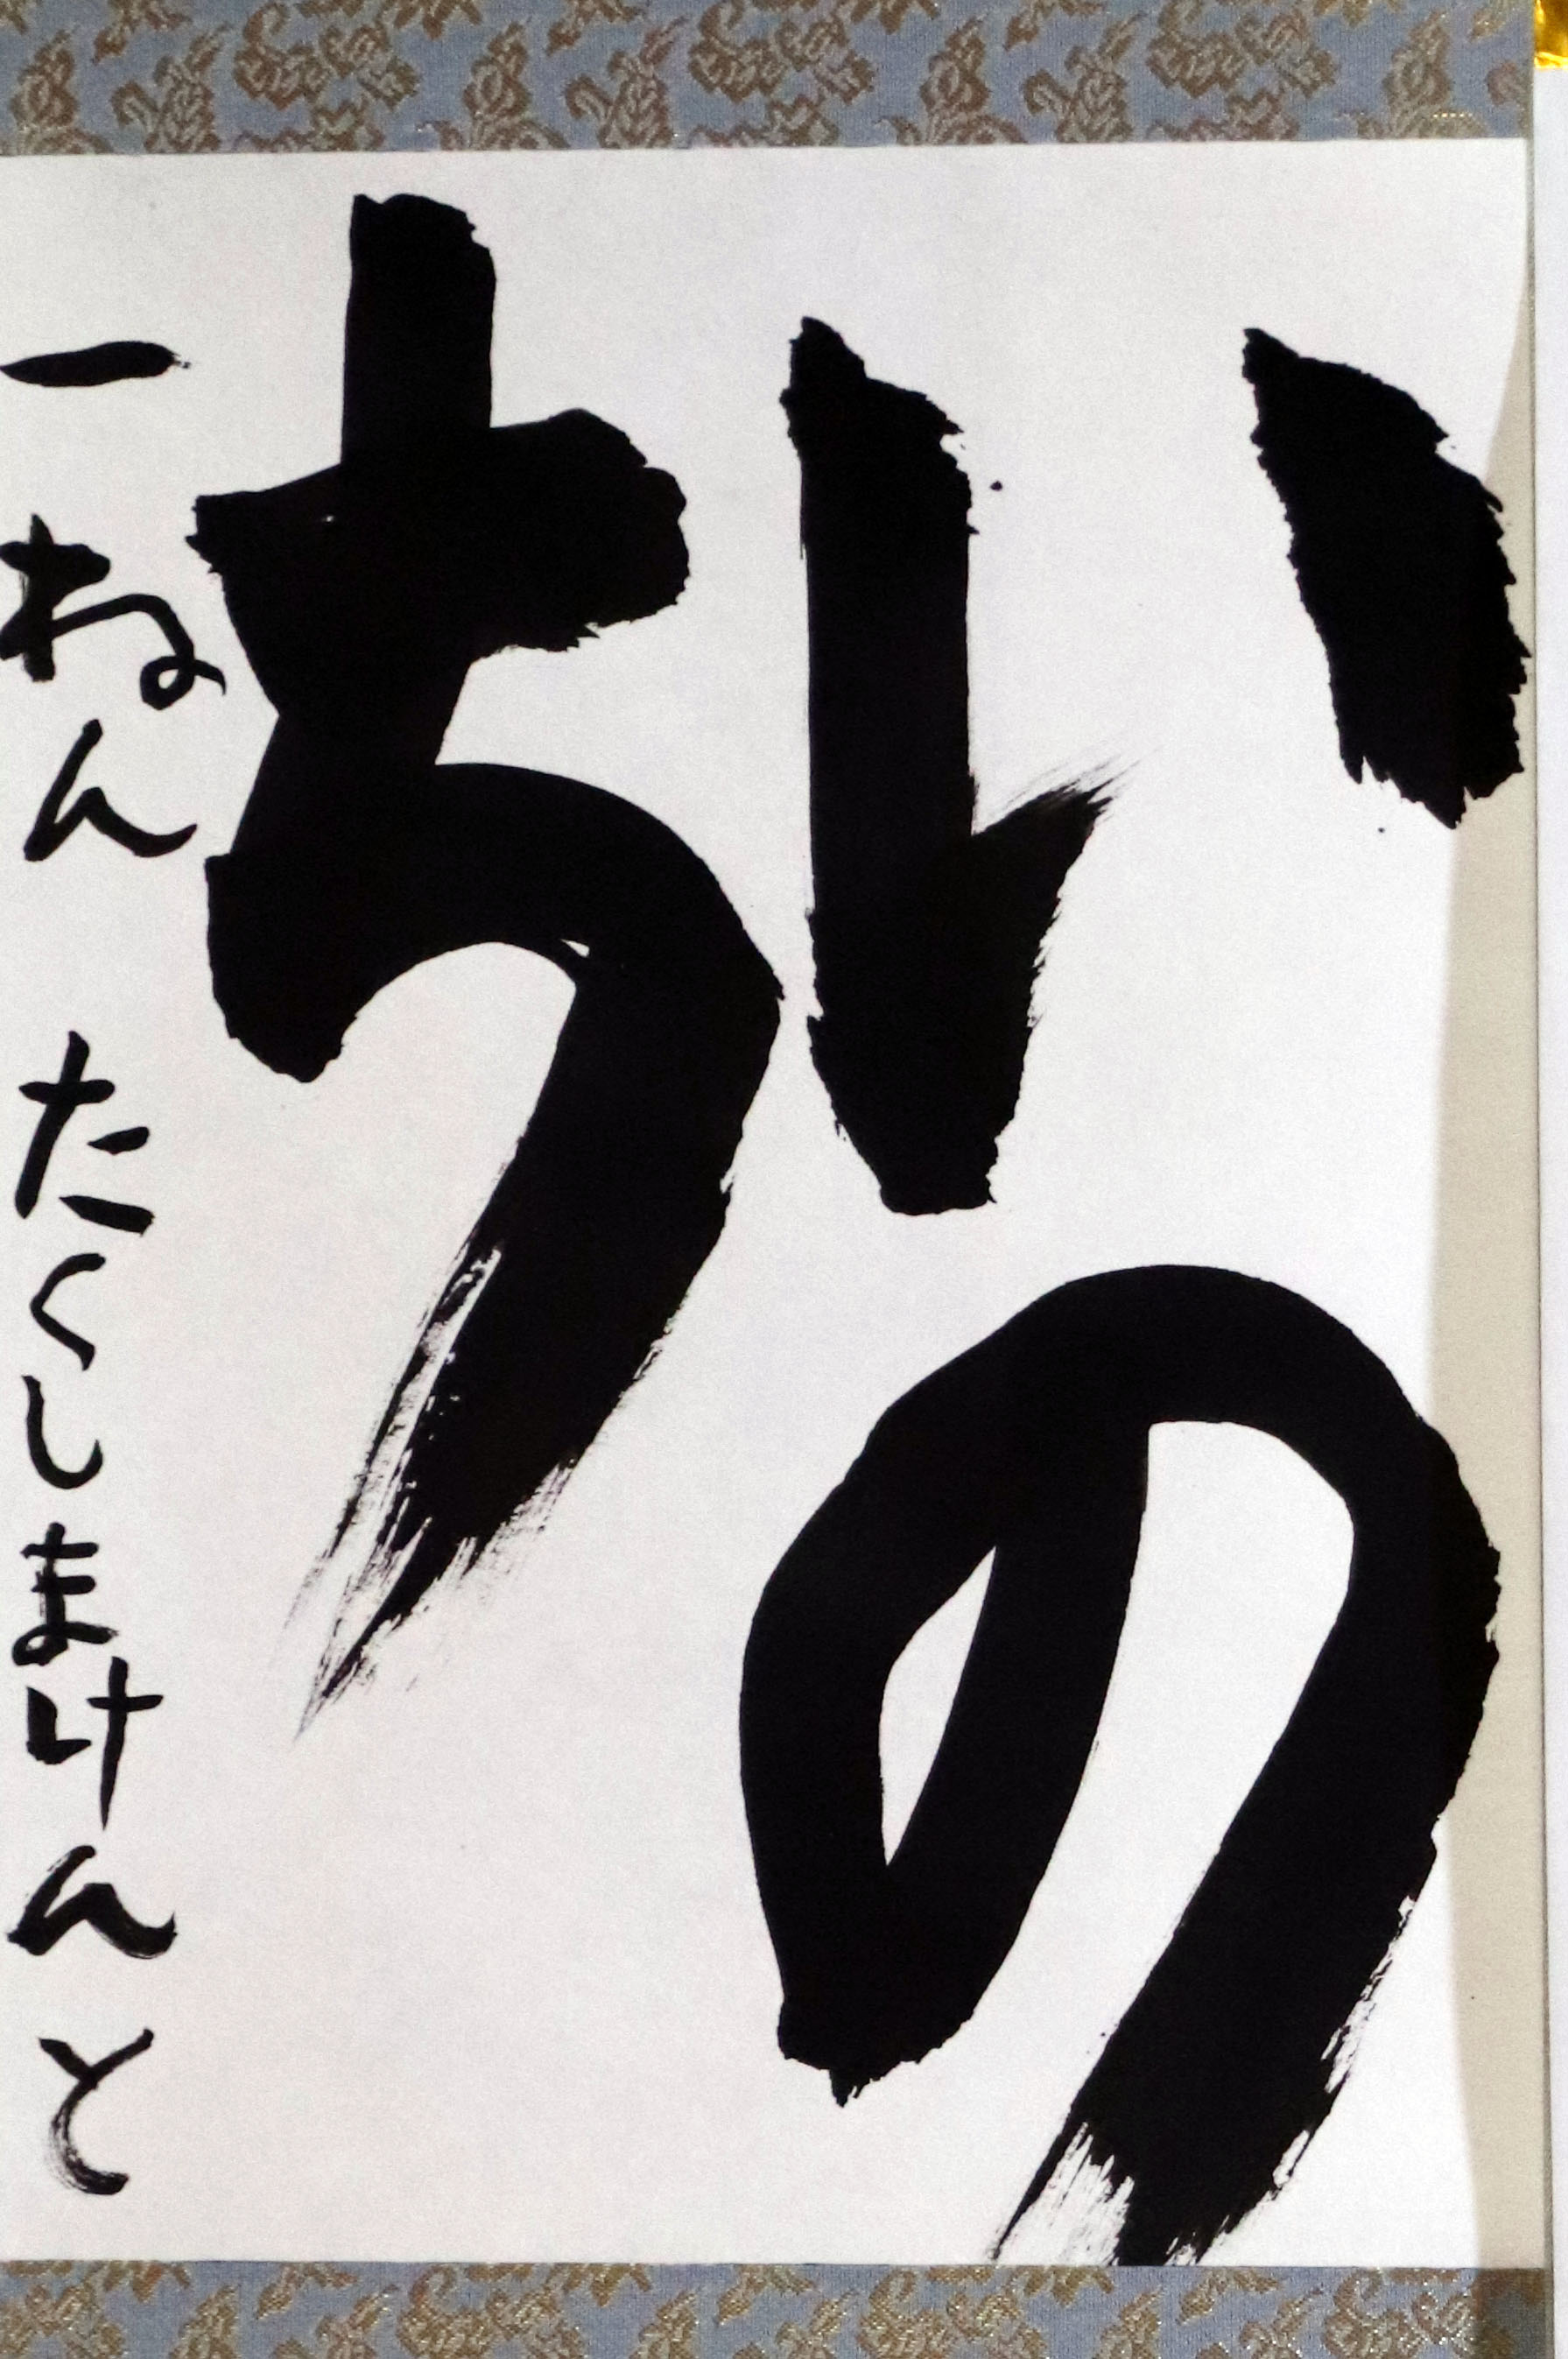 いの
ち
一ねん たくしまけんと